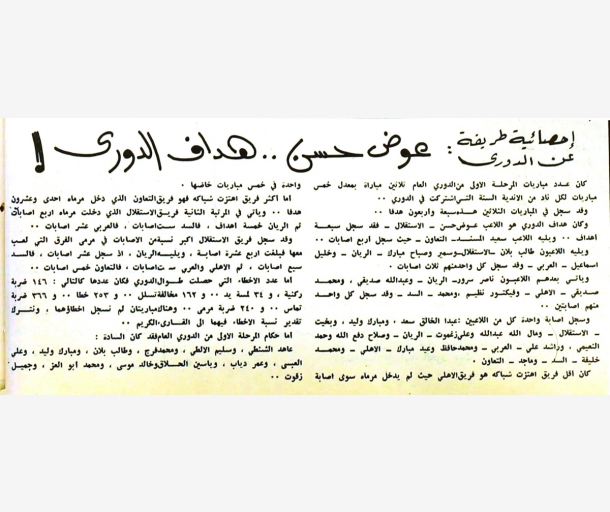 إحصائية طريفة عن الدوري :
عوض حسن .. هداف الدوري !
كان عدد مباريات المرحلة الاولى من الدوري العام ثلاثين مباراة بمعدل خمس
مباريات لكل ناد من الاندية الستة التي اشتركت في الدوري ..
وقد سجل في المباريات الثلاثين هذه سبعة واربعون هدفا ..
وكان هداف الدوري هو اللاعب عوض حسن ـ الاستقلال ـ فقد سجل سبعة
اهداف .. ويليه اللاعب سعيد المسند ـ التعاون ـ حيث سجل اربع اصابات ..
ويليه اللاعبون طالب بلان ـ الاستقلال وسمير وصباح مبارك ـ الريان ـ وخليل
اسماعيل ـ العربي ـ وقد سجل كل واحد منهم ثلاث اصابات .
وياتي بعدهم اللاعبون ناصر سرور ـ الريان ـ وعبدالله صديقي ، ومحمد
صديقي ـ الاهلي ـ وفيكتور نظيم ، ومحمد ـ السد ـ وقد سجل كل واحد
منهم اصابتين ..
وسجل اصابة واحدة كل من اللاعبين : عبد الخالق سعد ، ومبارك وليد ، وبخيت
ـ الاستقلال ـ ومال الله عبدالله وعلي زغموت ـ الريان ـ وصلاح دفع الله وحمد
النعيمي ، وراشد علي ـ العربي ـ ومحمد حافظ وعيد مبارك ـ الاهلي ـ ومحمد
خليفة ـ السد ـ وماجد ـ التعاون .
كان اقل فريق اهتزت شباكه هو فريق الاهلي حيث لم يدخل مرماه سوى اصابة
واحدة في خمس مباريات خاضها .
اما اكثر فريق اهتزت شباكه فهو فريق التعاون الذي دخل مرماه احدى وعشرون
هدفا .. وياتي في المرتبة الثانية فريق الاستقلال الذي دخلت مرماه اربع اصابات
ثم الريان خمسة اهداف ، فالسد ست اصابات ، فالعربي عشر اصابات ..
وقد سجل فريق الاستقلال اكبر نسبة من الاصابات في مرمى الفرق التي لعب
معها فبلغت اربع عشرة اصابة ، ويليه الريان ، اذ سجل عشر اصابات ، فالسد
سبع اصابات ، ثم الاهلي والعربي ست اصابات ، فالتعاون خمس اصابات ..
اما عدد الاخطاء التي حصلت طوال الدوري فكان عددها كالتالي : ١٤٦ ضربة
ركنية ، و ٣٤ لمسة يد .. و ١٦٢ مخالفة تسلل .. و ٢٥٣ خطا .. و ٣٦٦ ضربة
تماس .. و ٢٤٠ ضربة مرمى .. وهناك مباريتان لم نسجل اخطاؤهما ، ونترك
تقدير نسبة الاخطاء فيهما الى القارىء الكريم ..
اما حكام المرحلة الاولى من الدوري العام فقد كان السادة :
عاهد الشنطي ، وسليم الالطي ، ومحمد فرج ، وطالب بلان ، ومبارك وليد ، وعلي
العبسي ، وعمر دياب ، وياسين الحسلاق وخالد موسى ، ومحمد ابو العز ، وجميل
زقوت ..